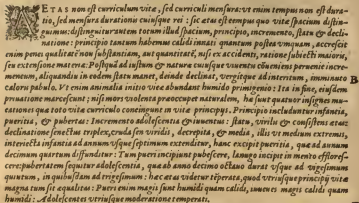 AETAS non est curriculum vitæ, sed curriculi mensura: vt enim tempus non est duratio, sed mensura durationis cuiusque rei: sic ætas est tempus quo vitæ spacium distinguimus: distinguitur autem totum illud spacium, principio, incremento, statu & declinatione: principio tantum habemus calidi innati quantum postea vmquam, accrescit
enim penes qualitatē non substantiam, aut quantitatē, nisi ex accidēti, ratione subiecti maioris,
seu extensione materia: Postquā ad iustum & natura cuiusque viuentu cōueniens peruenit incrementum, aliquandiu in eodem statu manet, deinde declinat, vergitque ad interitum, imminuto
B
caloris pabulo. Vt enim animalia initio viuæ abundant humido primigenio: Ita in fine, eiusdem
priuatione marcescunt; nisi mors violenta præoccupet naturalem, ha sunt quatuor insignes mutationes qua toto vita curriculo contingunt in vita principys. Principio includuntur infantia,
pueritia, & pubertas: Incremento adolescentia & iuuentu: statu, virilis & consistens ætas:
declinatione senectus triplex, cruda seu viridis, decrepita, & media, illis vt medium extremis,
interiecta infantia ad annum vsque septimum extenditur, hanc excipit pueritia, quæ ad annum
decimum quartum diffunditur: Tum pueri incipiunt pubescere, lanugo incipit in mento efflorescere: pubertatem sequitur adolescentia, quæ ab anno decimo octauo durat vsque ad vigesimum
quintum, in quibusdam ad trigesimum: hac ætas videtur tēperata, quod vtriusque principij vita
magna tum sit aqualitas: Pueri enim magis sunt humidi quam calidi, iuuenes magis calidi quam
humidi: Adolescentes vtriusque moderatione temperati.